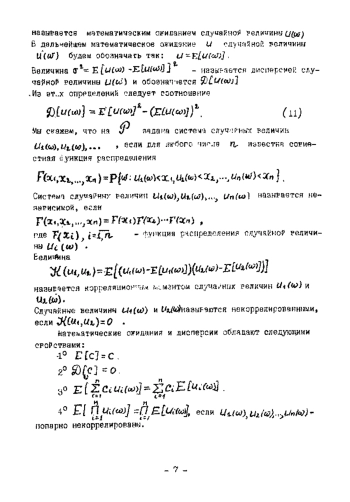 называется математическим ожиданием случайной величины U(ω)
В дальнейшем математическое ожидание u случайной величины
U(ω) будем обозначать так: u = E[U(ω)].
Величина σ² = E[U(ω) - E[U(ω)]]² - называется дисперсией слу-
чайной величины U(ω) и обозначается 𝒟[U(ω)]
Из этих определений следует соотношение
𝒟[U(ω)] = E[U(ω)]² - (E[U(ω)])². (11)
Мы скажем, что на 𝒫 задана система случайных величин
U₁(ω), U₂(ω), ..., если для любого числа n известна совме-
стная функция распределения
F(x₁, x₂, ..., xₙ) = P{ω: U₁(ω) < x₁, U₂(ω) < x₂, ..., Uₙ(ω) < xₙ}.
Система случайных величин U₁(ω), U₂(ω), ..., Uₙ(ω) называется не-
зависимой, если
F(x₁, x₂, ..., xₙ) = F(x₁)F(x₂)...F(xₙ),
где F(xᵢ), i = 1,n - функция распределения случайной величи-
ны Uᵢ(ω).
Величина
K(U₁, U₂) = E[(U₁(ω) - E[U₁(ω)])(U₂(ω) - E[U₂(ω)])]
называется корреляционным моментом случайных величин U₁(ω) и
U₂(ω).
Случайные величины U₁(ω) и U₂(ω) называются некоррелированными,
если K(U₁, U₂) = 0.
Математические ожидания и дисперсии обладают следующими
свойствами:
1° E[C] = C.
2° 𝒟[C] = 0.
3° E[∑ᵢ₌₁ⁿ CᵢUᵢ(ω)] = ∑ᵢ₌₁ⁿ CᵢE[Uᵢ(ω)].
4° E[∏ᵢ₌₁ⁿ Uᵢ(ω)] = ∏ᵢ₌₁ⁿ E[Uᵢ(ω)], если U₁(ω), U₂(ω), ..., Uₙ(ω) -
попарно некоррелированы.
- 7 -